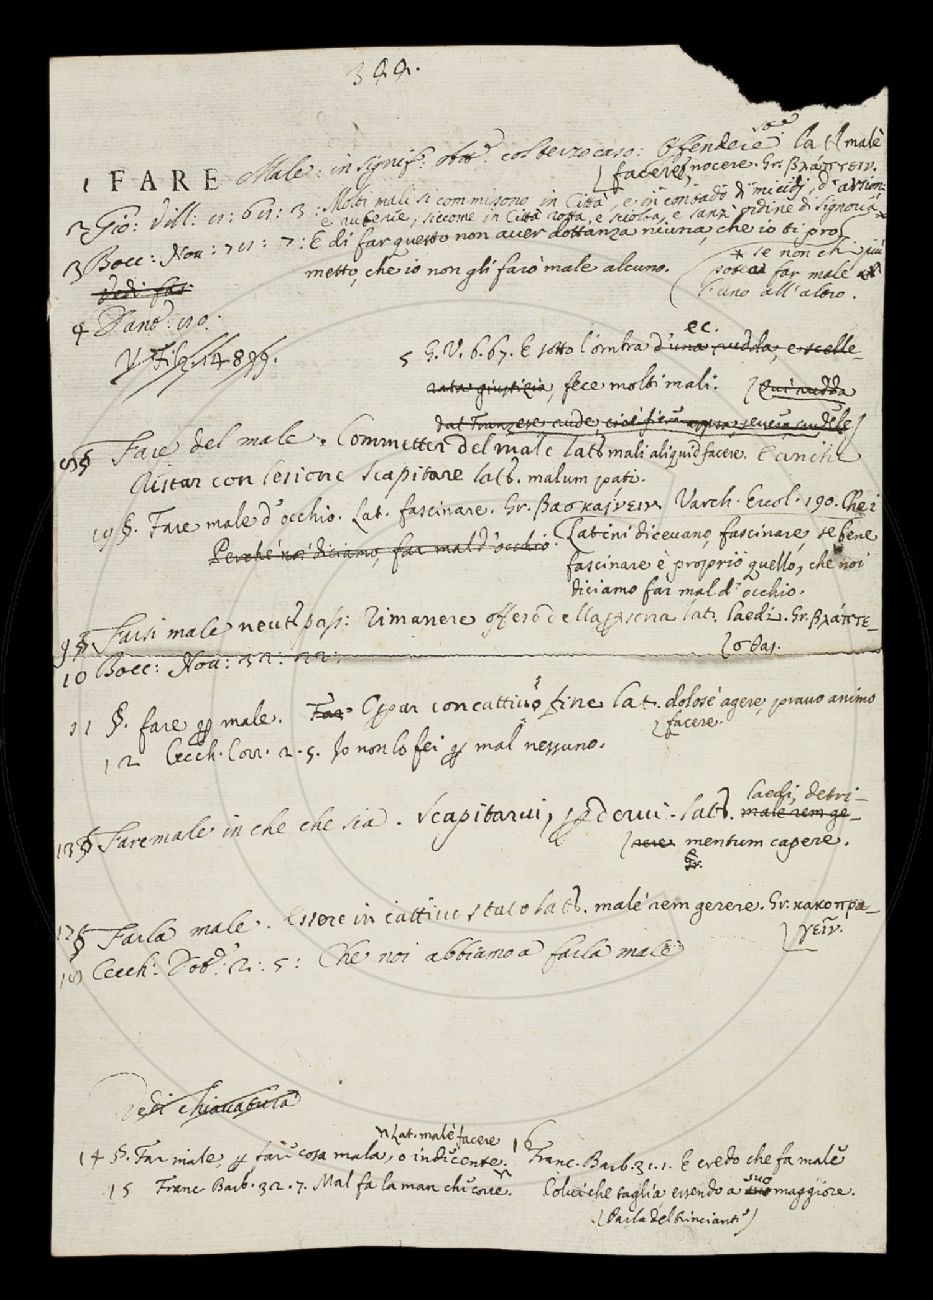 344.
1 FARE Male: in signif: att: col terzo caso: Offendere lat. malè
facere, nocere. Gr. βλάπτειν.
2 Gio: Vill: 11: 3: Molti mali si commisono in Città, e in contado di micidj, d'arsioni
e ruberie, siccome in Città rotta, e sciolta, e sanz' ordine di Signoria
3 Bocc: Nov: 71: 7: E di far questo non aver dottanza niuna, che io ti pro
metto, che io non gli farò male alcuno.
* se non chi più
potea far male
l'uno all'altro.
Vedi far
4 Dano: 110:
V. Filoc. 14899.
5 G. V. 6. 67. E sotto l'ombra d'una cruda, e scelle-
ec.
rata giustizia, fece molti mali. (Qui cruda
dal Franzese crude, cioè fiera, aspra, severa, crudele)
8 § Fare del male. Commetter del male lat. mali aliquid facere. E anche
Ristar con lesione scapitare lat. malum pati.
19 §. Fare male d'occhio. Lat. fascinare. Gr. βασκαίνειν. Varch. Ercol. 190. Che i
Perchè noi diciamo, far mal d'occhio. Latini dicevano, fascinare, se bene
fascinare è proprio quello, che noi
diciamo far mal d'occhio.
9 § Farsi male neut. pass: Rimanere offeso della persona lat. laedi. Gr. βλάπτε-
σθαι.
10 Bocc: Nov: 32: 22:
11 §. fare male. Far Oprar con cattivo fine lat. dolosè agere, pravo animo
facere.
12 Cecch. Corr. 2. 5. Io non lo fei mal nessuno.
13 § Far male in che che sia. Scapitarvi, perdervi. lat. male rem ge-
laedi, detri-
rere mentum capere.
Gr.
17 § Farla male. Essere in cattivo stato lat. malè rem gerere. Gr. κακοπρα-
γεῖν.
18 Cecch: Dot: 2: 5: Che noi abbiamo a farla male
Vedi chiavatura
Lat. malè facere
14 §. Far male, far cosa mala, o indecente.
15 Franc. Barb. 32. 7. Mal fa la man chi corre.
16 Franc. Barb. 31. 1. E credo che fa male
Colui che taglia essendo a suo maggiore.
(Parla del trinciante)